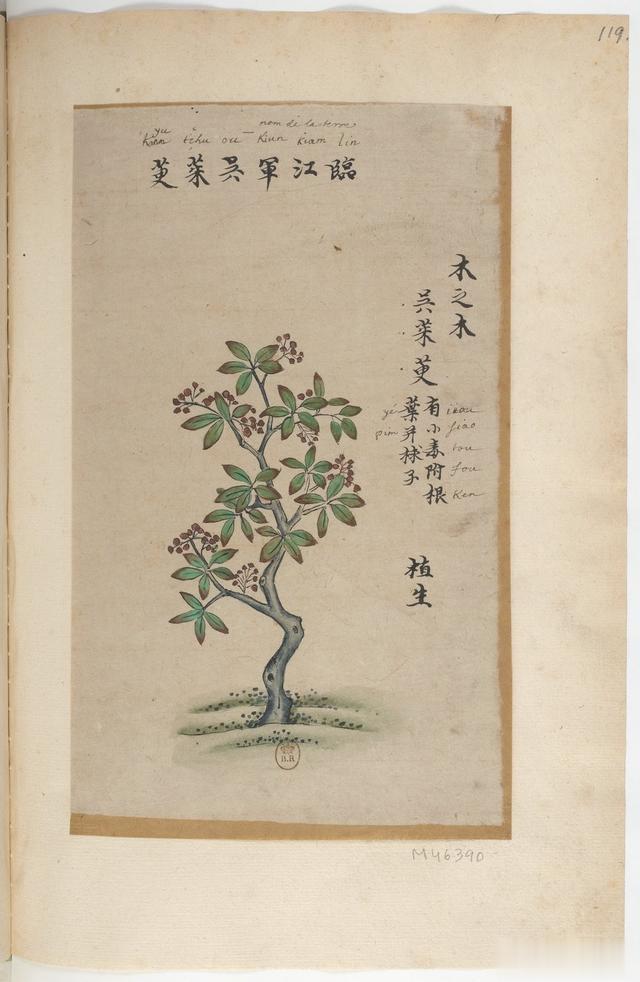 119.
nom de la terre
yu
tchu ou Kiun Kiam lin
臨江軍吳茱萸
木之木
吳茱萸
有小毒附根
葉并梂子
siao
tou
fou
Ken
yé
pim
植生
B.R
M46390